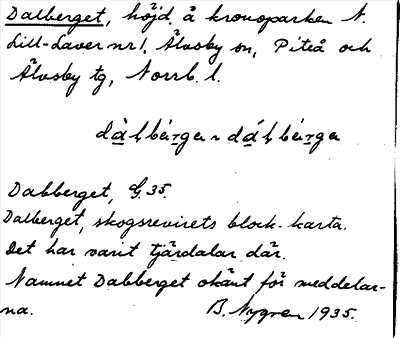 Dalberget, höjd å kronoparken N.
Lill-Laver nr 1, Älvsby sn, Piteå och
Älvsby tg, Norrb. l.
dàḷbærga ~ dáḷbærga
Dabberget, G. 35.
Dalberget, skogsrevirets block-karta.
Det har varit tjärdalar där.
Namnet Dabberget okänt för meddelar-
na. B. Nygren 1935.